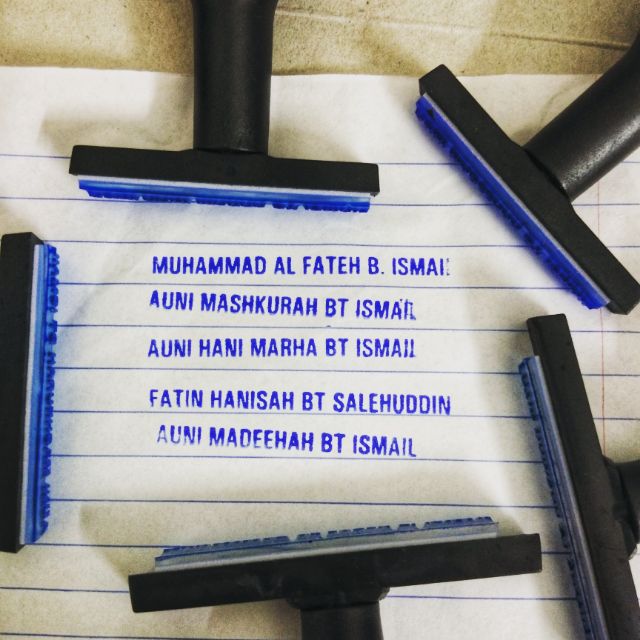 MUHAMMAD AL FATEH B. ISMAIL
AUNI MASHKURAH BT ISMAIL
AUNI HANI MARHA BT ISMAIL
FATIN HANISAH BT SALEHUDDIN
AUNI MADEEHAH BT ISMAIL